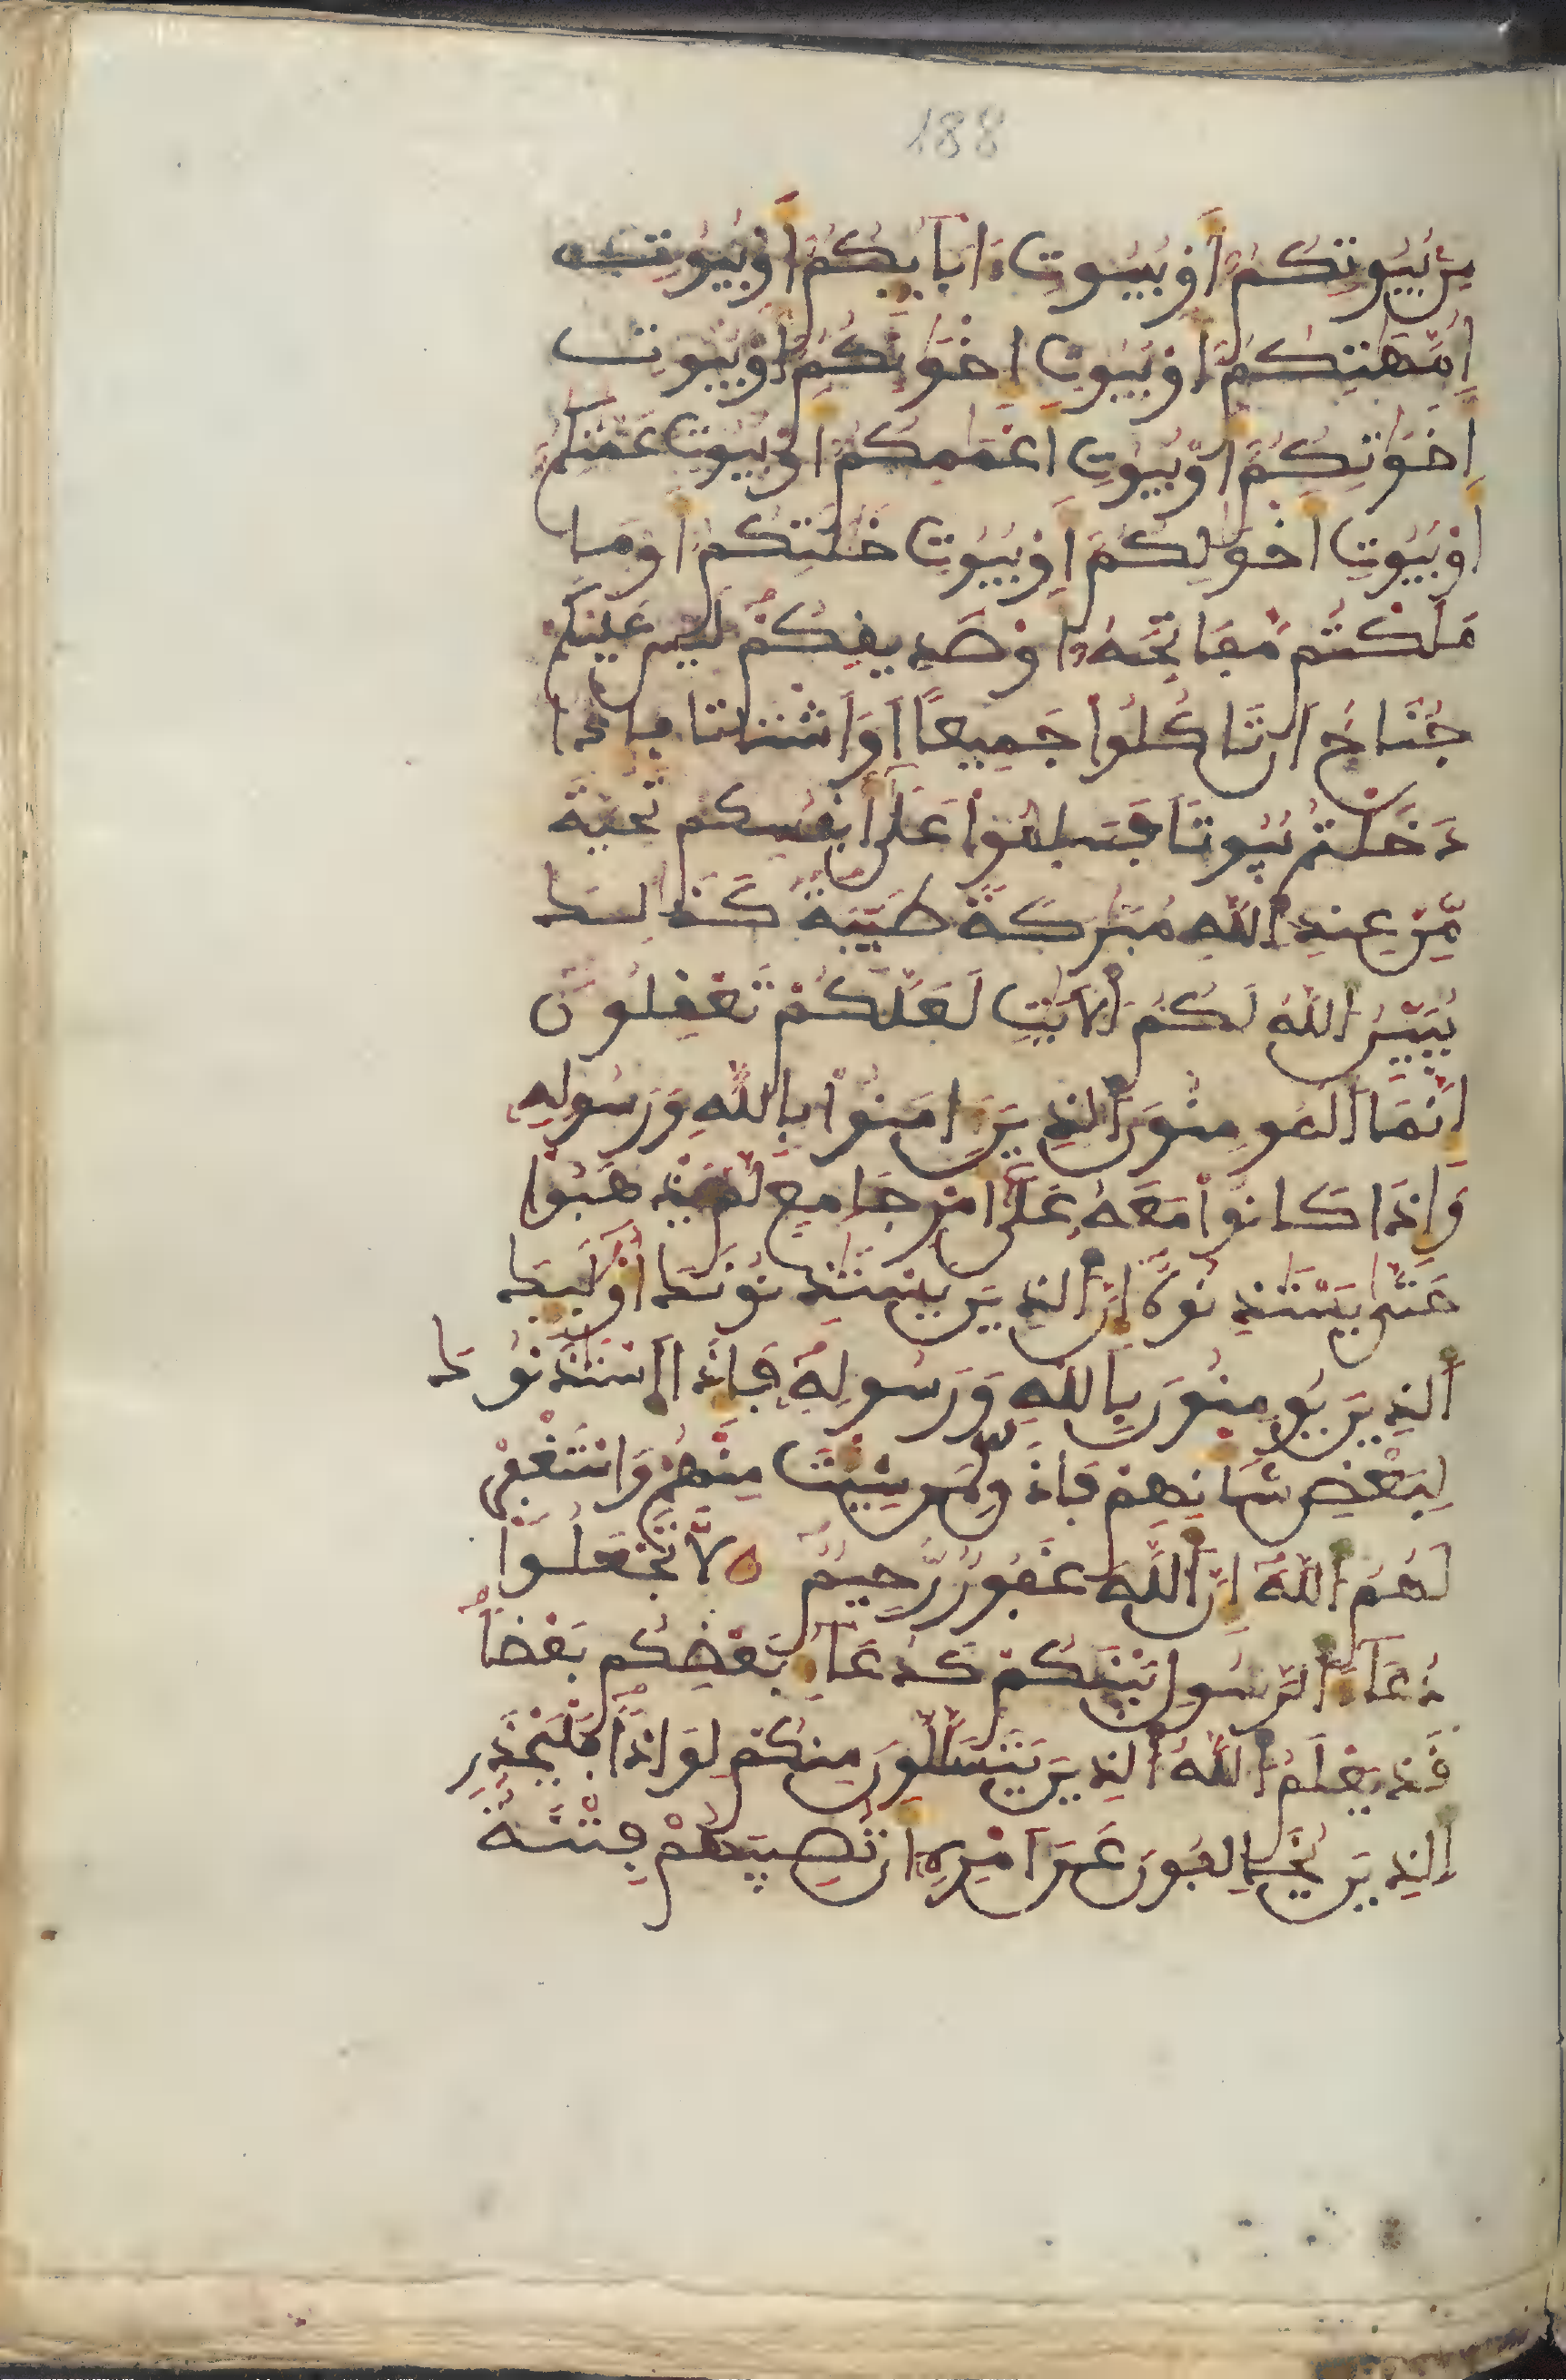 188
مِنۢ بُيُوتِكُمُۥٓ أَوْ بُيُوتِ ءَابَآئِكُمُۥٓ أَوْ بُيُوتِ
أُمَّهَٰتِكُمُۥٓ أَوْ بُيُوتِ إِخْوَٰنِكُمُۥٓ أَوْ بُيُوتِ
أَخَوَٰتِكُمُۥٓ أَوْ بُيُوتِ أَعْمَٰمِكُمُۥٓ أَوْ بُيُوتِ عَمَّٰتِكُمُۥٓ
أَوْ بُيُوتِ أَخْوَٰلِكُمُۥٓ أَوْ بُيُوتِ خَٰلَٰتِكُمُۥٓ أَوْ مَا
مَلَكْتُم مَّفَاتِحَهُۥٓ أَوْ صَدِيقِكُمْ لَيْسَ عَلَيْكُمْ
جُنَاحٌ أَن تَاكُلُوا۟ جَمِيعًا أَوَ اشْتَاتًا فَإِذَا
دَخَلْتُم بُيُوتًا فَسَلِّمُوا۟ عَلَىٰٓ أَنفُسِكُمْ تَحِيَّةً
مِّنْ عِندِ اللَّهِ مُبَٰرَكَةً طَيِّبَةً كَذَٰلِكَ
يُبَيِّنُ اللَّهُ لَكُمُ الَايَٰتِ لَعَلَّكُمْ تَعْقِلُونَ
إِنَّمَا الْمُومِنُونَ الَّذِينَ ءَامَنُوا۟ بِاللَّهِ وَرَسُولِهِۦ
وَإِذَا كَانُوا۟ مَعَهُۥ عَلَىٰٓ أَمْرٍ جَامِعٍ لَّمْ يَذْهَبُوا۟
حَتَّىٰ يَسْتَٰذِنُوهُ إِنَّ الَّذِينَ يَسْتَٰذِنُونَكَ أُو۟لَٰٓئِكَ
الَّذِينَ يُومِنُونَ بِاللَّهِ وَرَسُولِهِۦ فَإِذَا اسْتَٰذَنُوكَ
لِبَعْضِ شَانِهِمْ فَاذَن لِّمَن شِيتَ مِنْهُمْ وَاسْتَغْفِرْ
لَهُمُ اللَّهَ إِنَّ اللَّهَ غَفُورٌ رَّحِيمٌ لَّا تَجْعَلُوا۟
دُعَآءَ الرَّسُولِ بَيْنَكُمْ كَدُعَآءِ بَعْضِكُم بَعْضًا
قَدْ يَعْلَمُ اللَّهُ الَّذِينَ يَتَسَلَّلُونَ مِنكُمْ لِوَاذًا فَلْيَحْذَرِ
الَّذِينَ يُخَالِفُونَ عَنَ امْرِهِۦٓ أَن تُصِيبَهُمْ فِتْنَةٌ